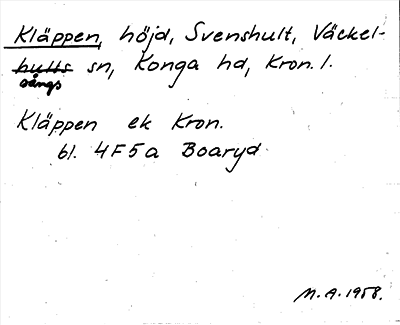 Kläppen, höjd, Svenshult, Väckel-
hults sn, Konga hd, Kron. l.
sångs
Kläppen ek Kron.
bl. 4F5a Boaryd
M. A. 1958.